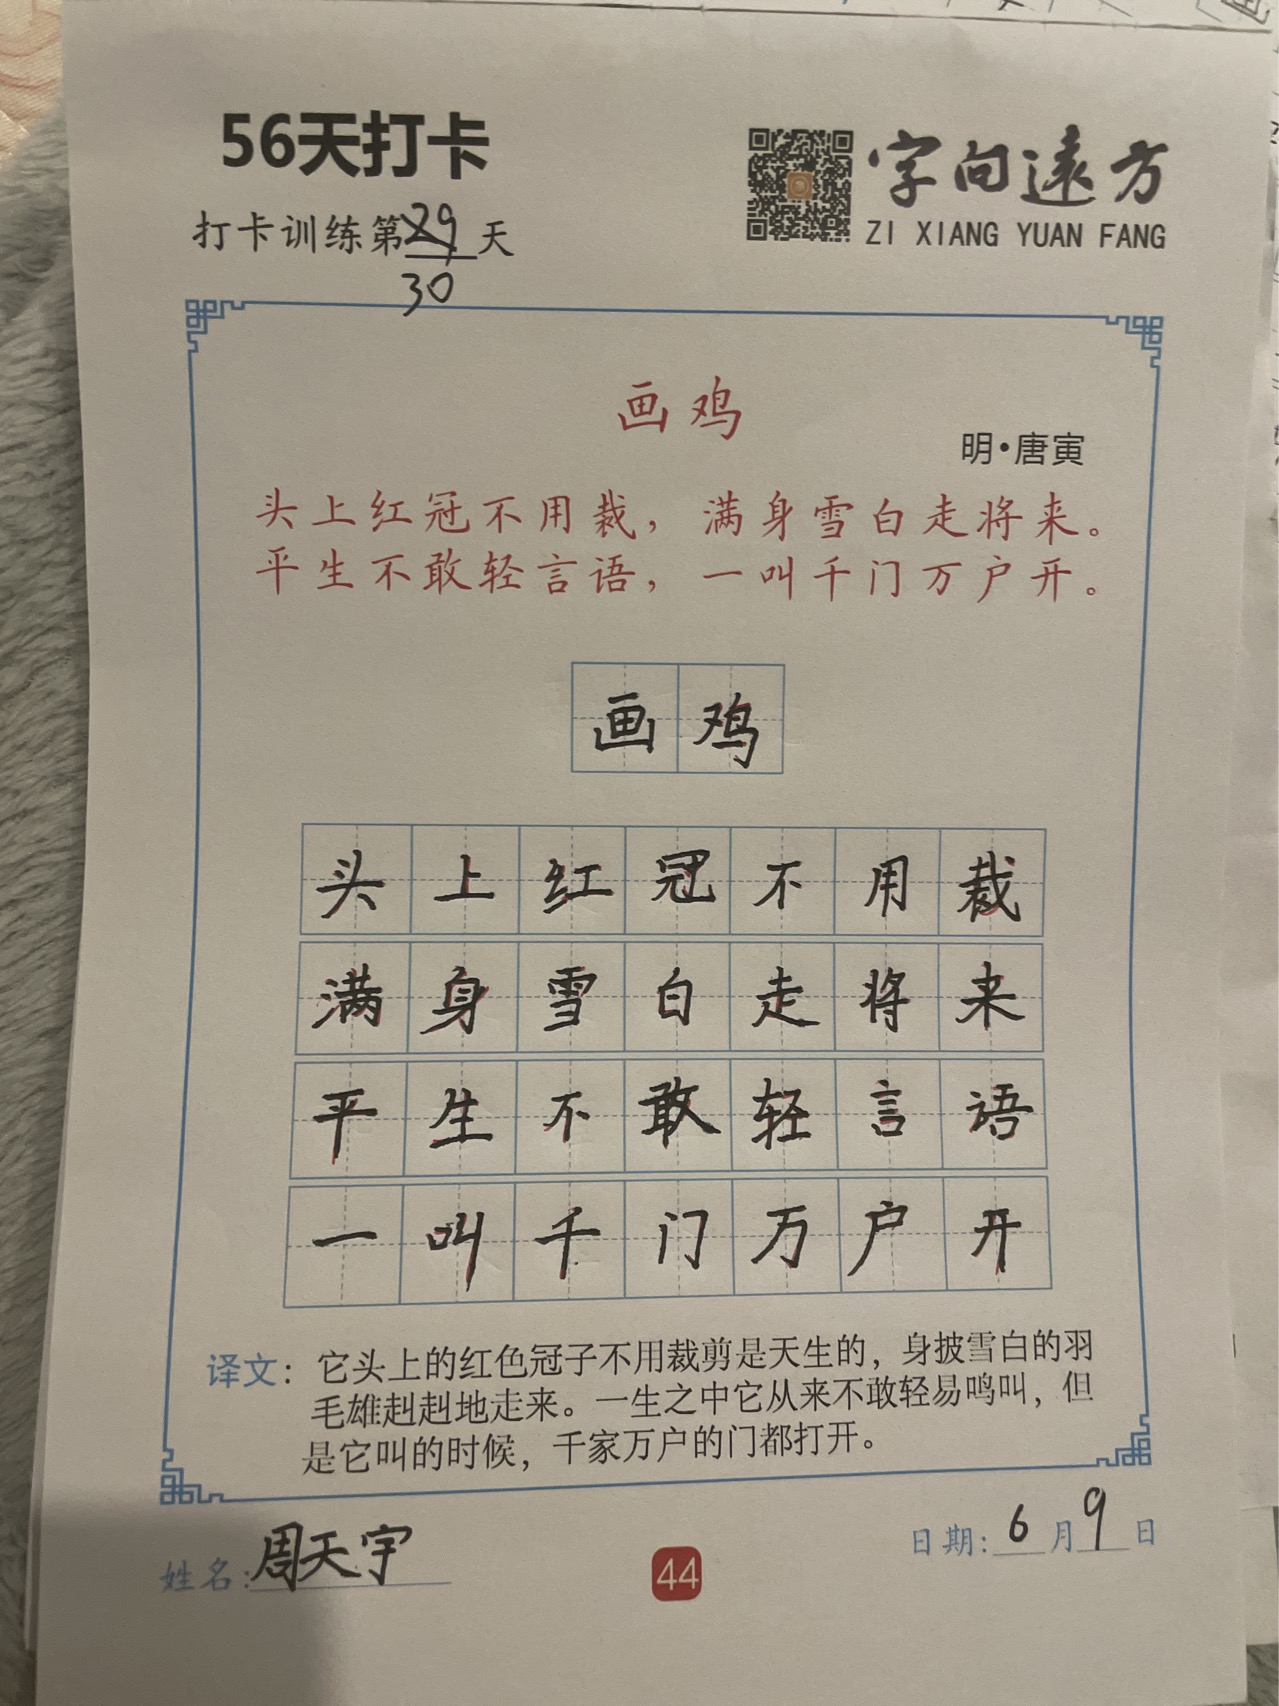 56天打卡
字向遠方
ZI XIANG YUAN FANG
打卡训练第29天
30
画鸡
明·唐寅
头上红冠不用裁，满身雪白走将来。
平生不敢轻言语，一叫千门万户开。
画鸡
头上红冠不用裁
满身雪白走将来
平生不敢轻言语
一叫千门万户开
译文：它头上的红色冠子不用裁剪是天生的，身披雪白的羽
毛雄赳赳地走来。一生之中它从来不敢轻易鸣叫，但
是它叫的时候，千家万户的门都打开。
姓名：周天宇
44
日期：6月9日